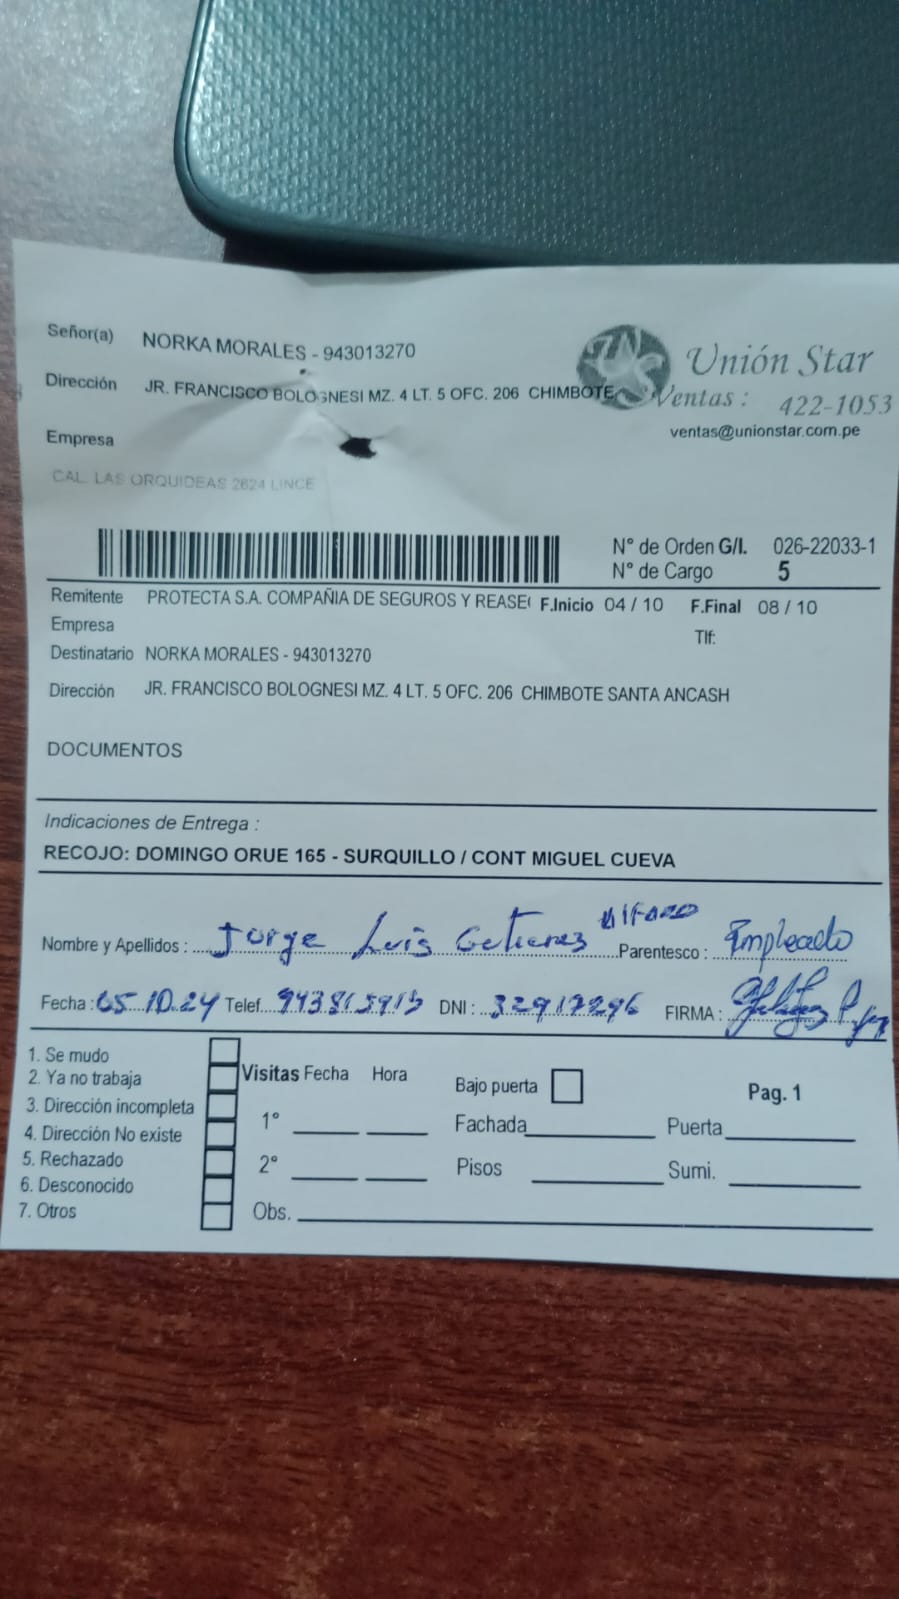 Señor(a) NORKA MORALES - 943013270
Dirección JR. FRANCISCO BOLOGNESI MZ. 4 LT. 5 OFC. 206 CHIMBOTE
Empresa
CAL. LAS ORQUIDEAS 2624 LINCE
UNS
Unión Star
Ventas : 422-1053
ventas@unionstar.com.pe
N° de Orden G/I. 026-22033-1
N° de Cargo 5
Remitente PROTECTA S.A. COMPAÑIA DE SEGUROS Y REASE( F.Inicio 04 / 10 F.Final 08 / 10
Empresa Tlf:
Destinatario NORKA MORALES - 943013270
Dirección JR. FRANCISCO BOLOGNESI MZ. 4 LT. 5 OFC. 206 CHIMBOTE SANTA ANCASH
DOCUMENTOS
Indicaciones de Entrega :
RECOJO: DOMINGO ORUE 165 - SURQUILLO / CONT MIGUEL CUEVA
Nombre y Apellidos : Jorge Luis Parentesco : Empleado
Fecha : 05.10.24 Telef. DNI : 32917296 FIRMA :
1. Se mudo
2. Ya no trabaja
3. Dirección incompleta
4. Dirección No existe
5. Rechazado
6. Desconocido
7. Otros
Visitas Fecha Hora
1°
2°
Obs.
Bajo puerta Pag. 1
Fachada Puerta
Pisos Sumi.